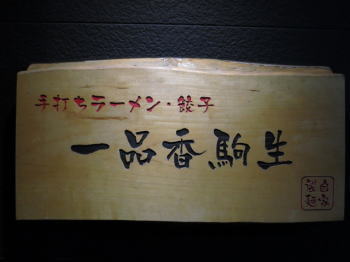 手打ちラーメン・餃子
一品香駒生
自家製麺